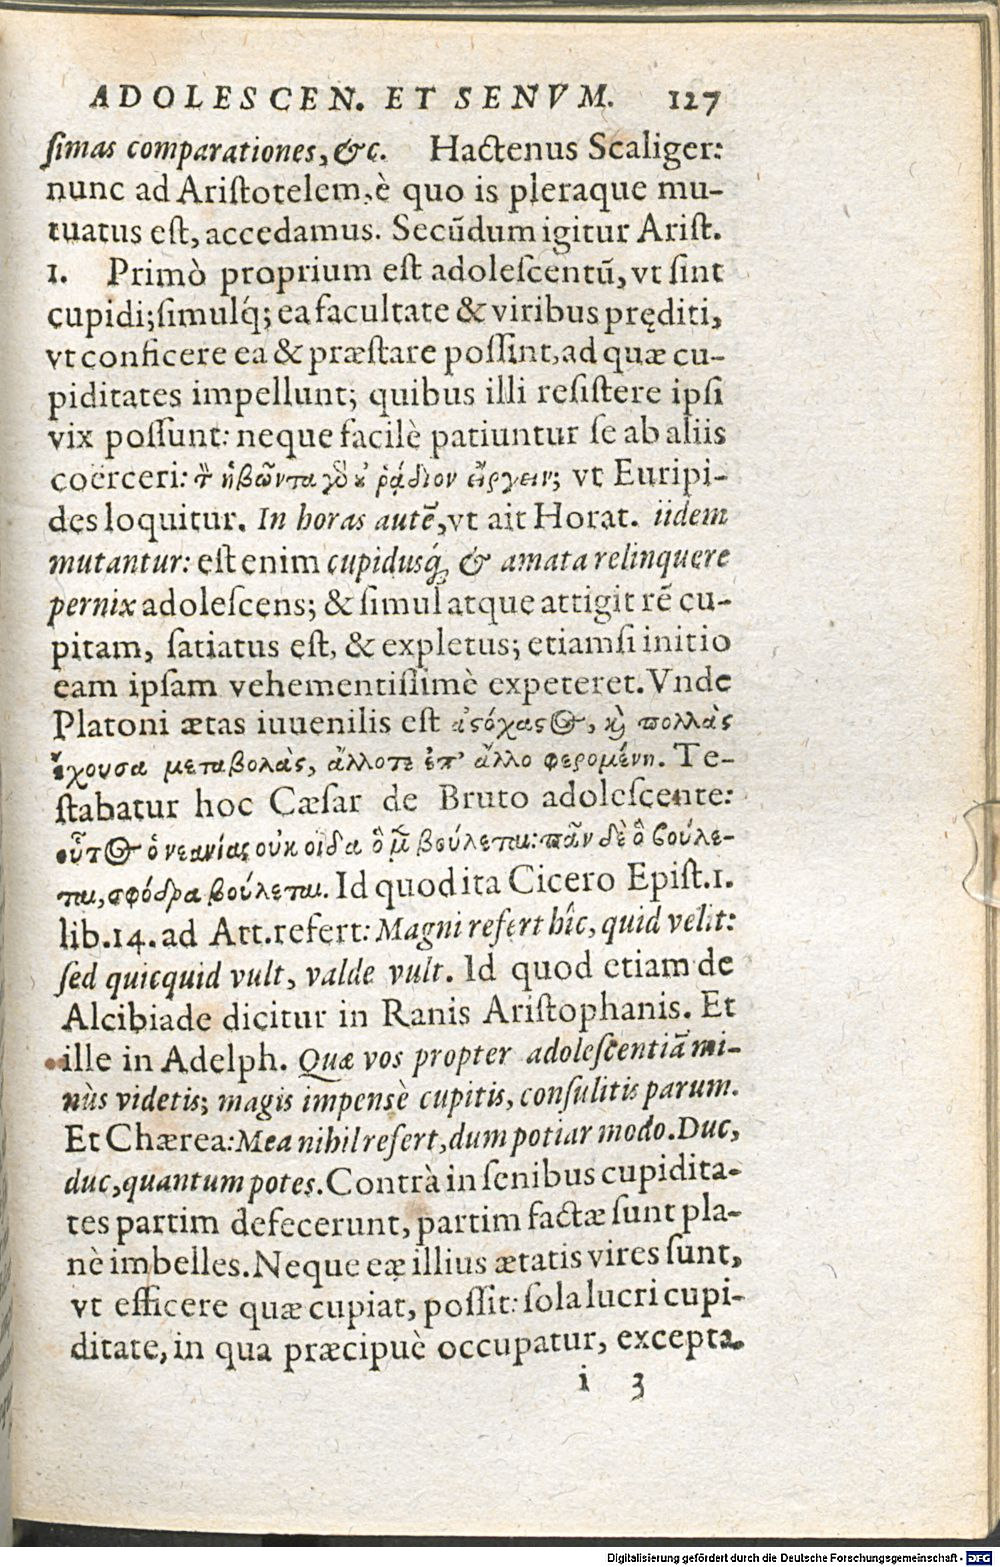 ADOLESCEN. ET SENVM. 127
ſimas comparationes, &c. Hactenus Scaliger:
nunc ad Ariſtotelem, è quo is pleraque mu-
tuatus eſt, accedamus. Secūdum igitur Ariſt.
1. Primò proprium eſt adoleſcentū, vt ſint
cupidi; ſimulq́; ea facultate & viribus pręditi,
vt conficere ea & præſtare poſſint, ad quæ cu-
piditates impellunt; quibus illi reſiſtere ipſi
vix poſſunt: neque facilè patiuntur ſe ab aliis
coërceri: τ̀ ἡβῶντα γδ̀ ȣ̓ ῥᾴδιον εἴργειν; vt Euripi-
des loquitur. In horas autē, vt ait Horat. iidem
mutantur: eſt enim cupidusq́, & amata relinquere
pernix adoleſcens; & ſimul atque attigit rē cu-
pitam, ſatiatus eſt, & expletus; etiamſi initio
eam ipſam vehementiſſimè expeteret. Vnde
Platoni ætas iuuenilis eſt ἀϛόχαϛος, ϗ̀ πολλὰς
ἔχουσα μεταβολὰς, ἄλλοτε ἐπ' ἄλλο φερομένη. Te-
ſtabatur hoc Cæſar de Bruto adoleſcente:
οὗτος ὁ νεανίας οὐκ οἶδα ὃ μ̃ βούλεται: πᾶν δὲ ὃ βούλε-
ται, σφόδρα βούλεται. Id quod ita Cicero Epiſt. 1.
lib. 14. ad Att. refert: Magni refert hîc, quid velit:
ſed quicquid vult, valde vult. Id quod etiam de
Alcibiade dicitur in Ranis Ariſtophanis. Et
ille in Adelph. Quæ vos propter adoleſcentiā mi-
nùs videtis; magis impensè cupitis, conſulitis parum.
Et Chærea: Mea nihil refert, dum potiar modo. Duc,
duc, quantum potes. Contrà in ſenibus cupidita-
tes partim defecerunt, partim factæ ſunt pla-
nè imbelles. Neque eæ illius ætatis vires ſunt,
vt efficere quæ cupiat, poſſit: ſola lucri cupi-
ditate, in qua præcipuè occupatur, excepta.
i 3
Digitalisierung gefördert durch die Deutsche Forschungsgemeinschaft - DFG